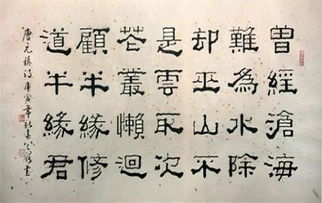 曾經滄海
難為水除
却巫山不
是雲取次
花叢懶迴
顧半緣修
道半緣君
唐元稹詩庚寅年